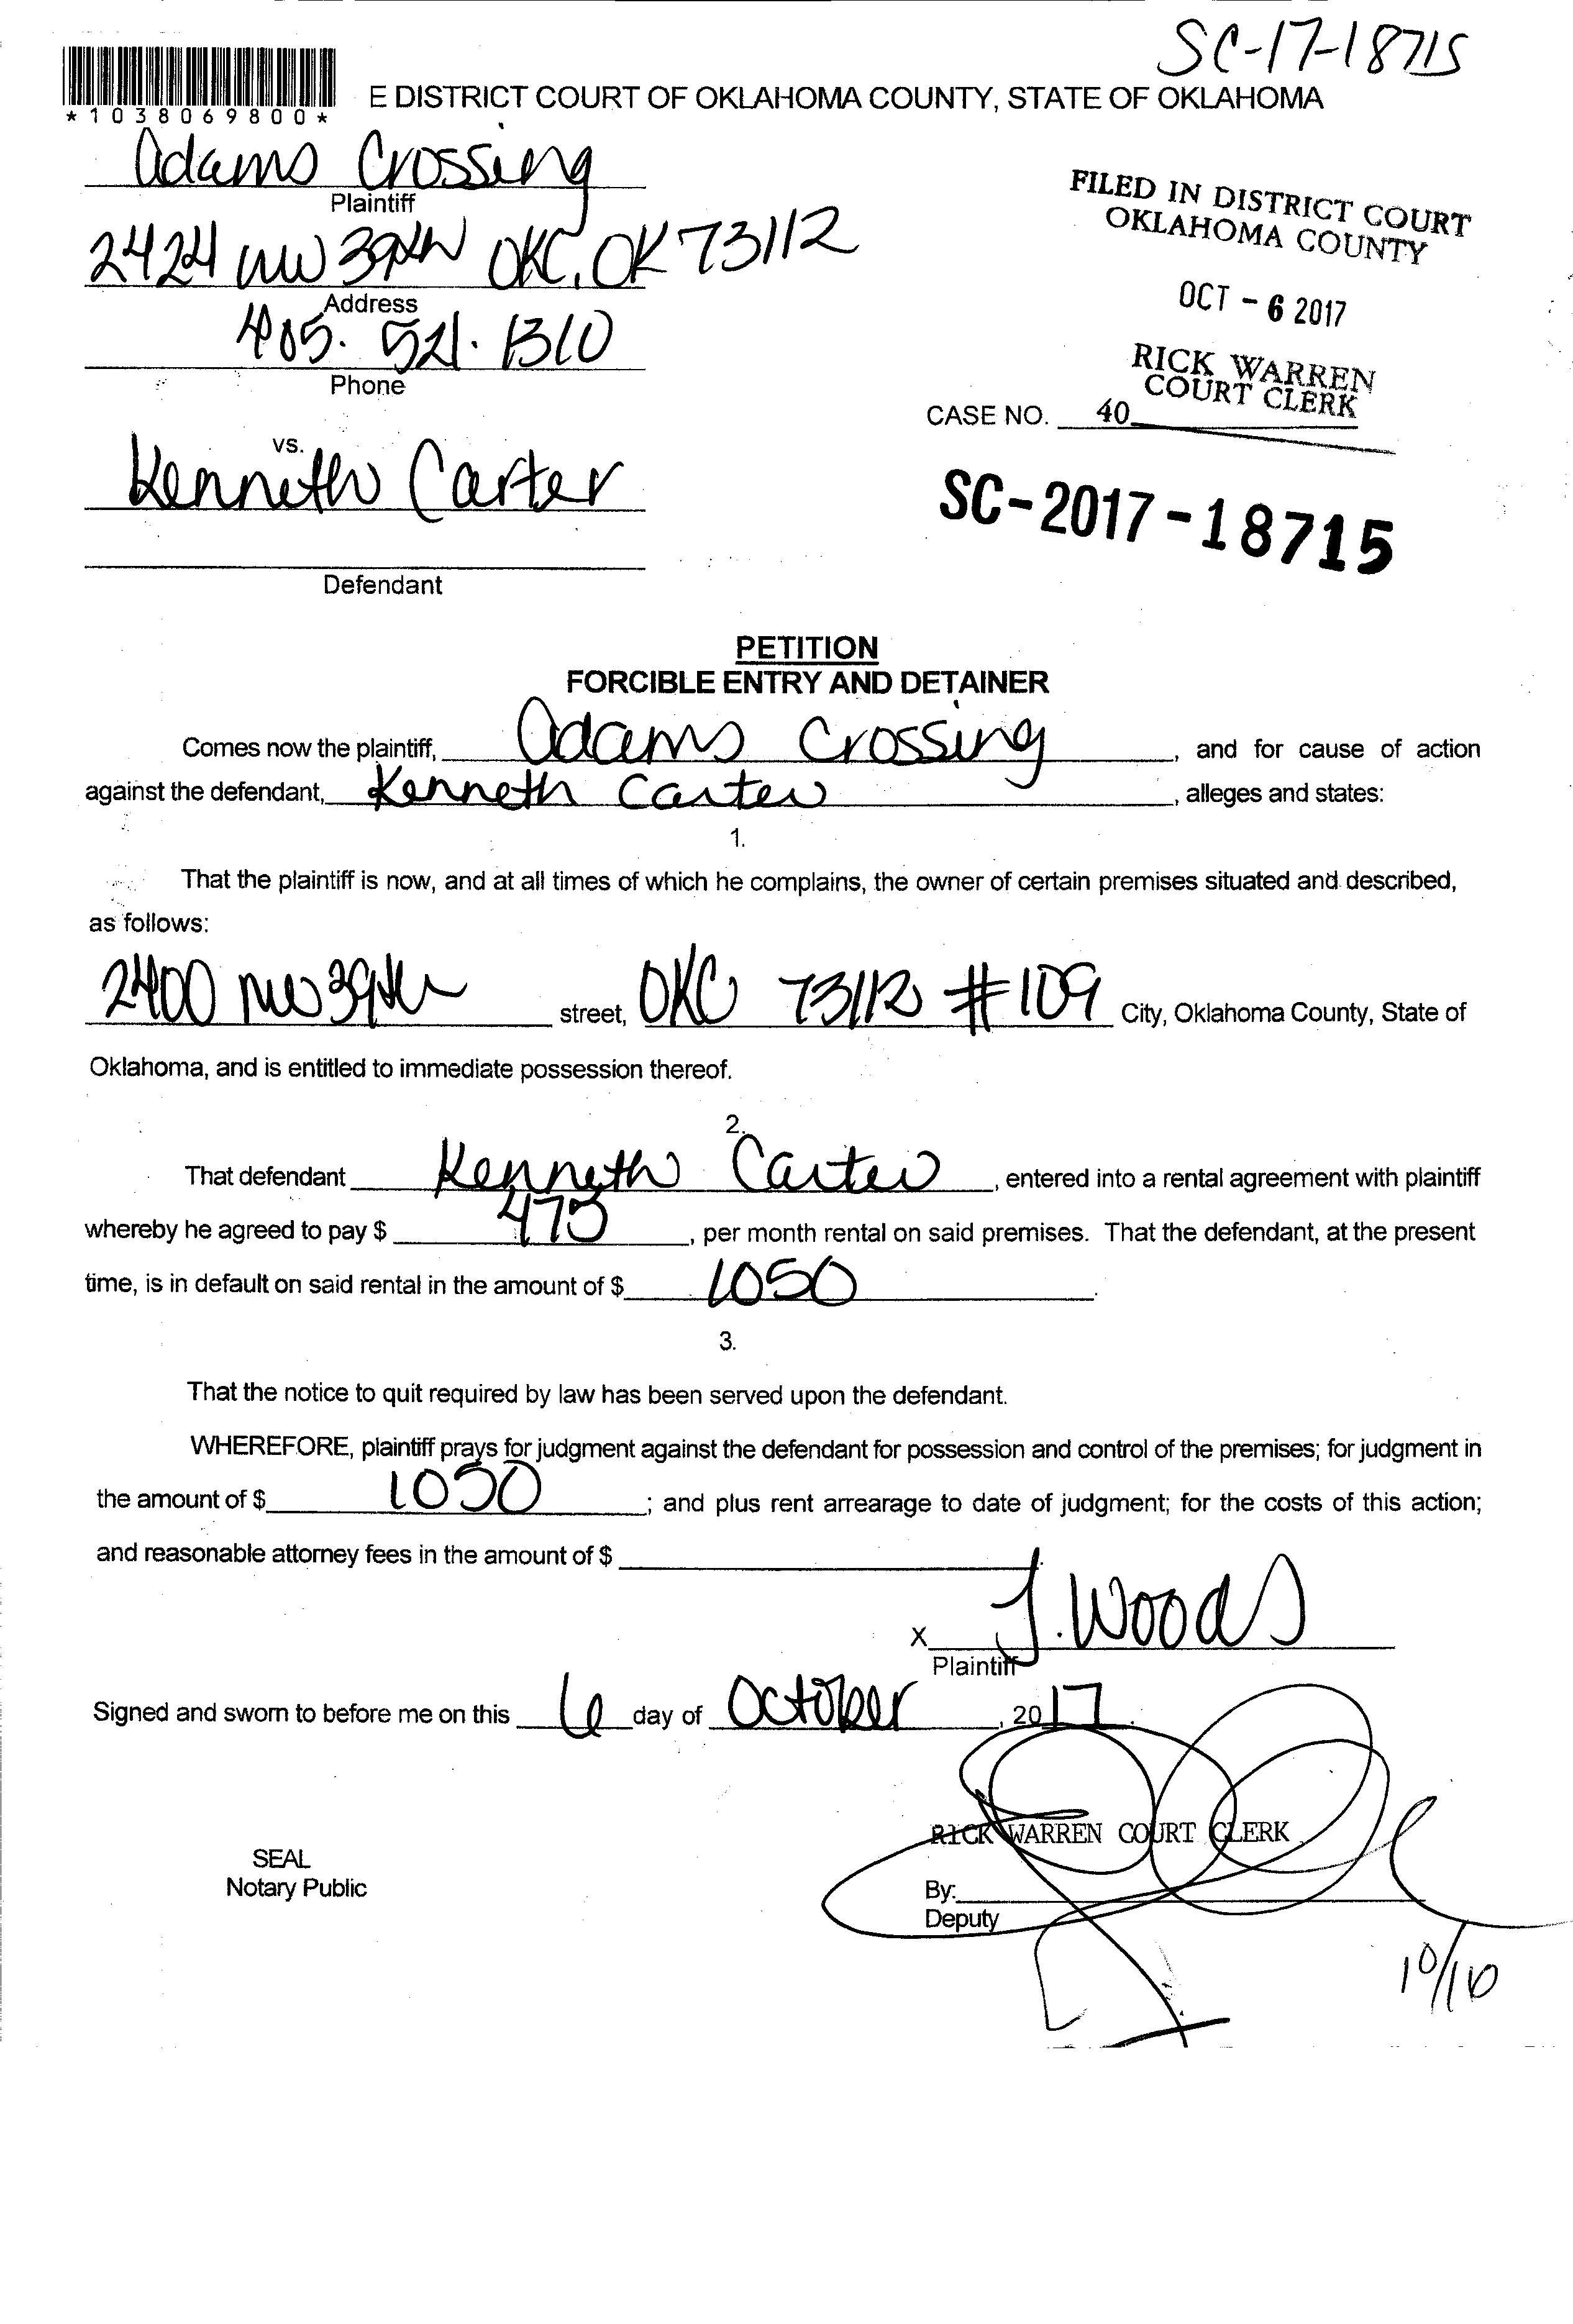 SC-17-18715
*1038069800*
E DISTRICT COURT OF OKLAHOMA COUNTY, STATE OF OKLAHOMA
Adams Crossing
Plaintiff
2424 NW 39th OKC, OK 73112
Address
405. 521. 1310
Phone
FILED IN DISTRICT COURT
OKLAHOMA COUNTY
OCT - 6 2017
RICK WARREN
COURT CLERK
CASE NO. 40
vs.
Kenneth Carter
SC-2017-18715
Defendant
PETITION
FORCIBLE ENTRY AND DETAINER
Comes now the plaintiff, Adams Crossing, and for cause of action
against the defendant, Kenneth Carter, alleges and states:
1.
That the plaintiff is now, and at all times of which he complains, the owner of certain premises situated and described,
as follows:
2400 NW 39th street, OKC 73112 #109 City, Oklahoma County, State of
Oklahoma, and is entitled to immediate possession thereof.
2.
That defendant Kenneth Carter, entered into a rental agreement with plaintiff
whereby he agreed to pay $ 475, per month rental on said premises. That the defendant, at the present
time, is in default on said rental in the amount of $ 1050.
3.
That the notice to quit required by law has been served upon the defendant.
WHEREFORE, plaintiff prays for judgment against the defendant for possession and control of the premises; for judgment in
the amount of $ 1050; and plus rent arrearage to date of judgment; for the costs of this action;
and reasonable attorney fees in the amount of $
x J. Woods
Plaintiff
Signed and sworn to before me on this 6 day of October, 2017.
RICK WARREN COURT CLERK
SEAL
Notary Public
By:
Deputy
10/10